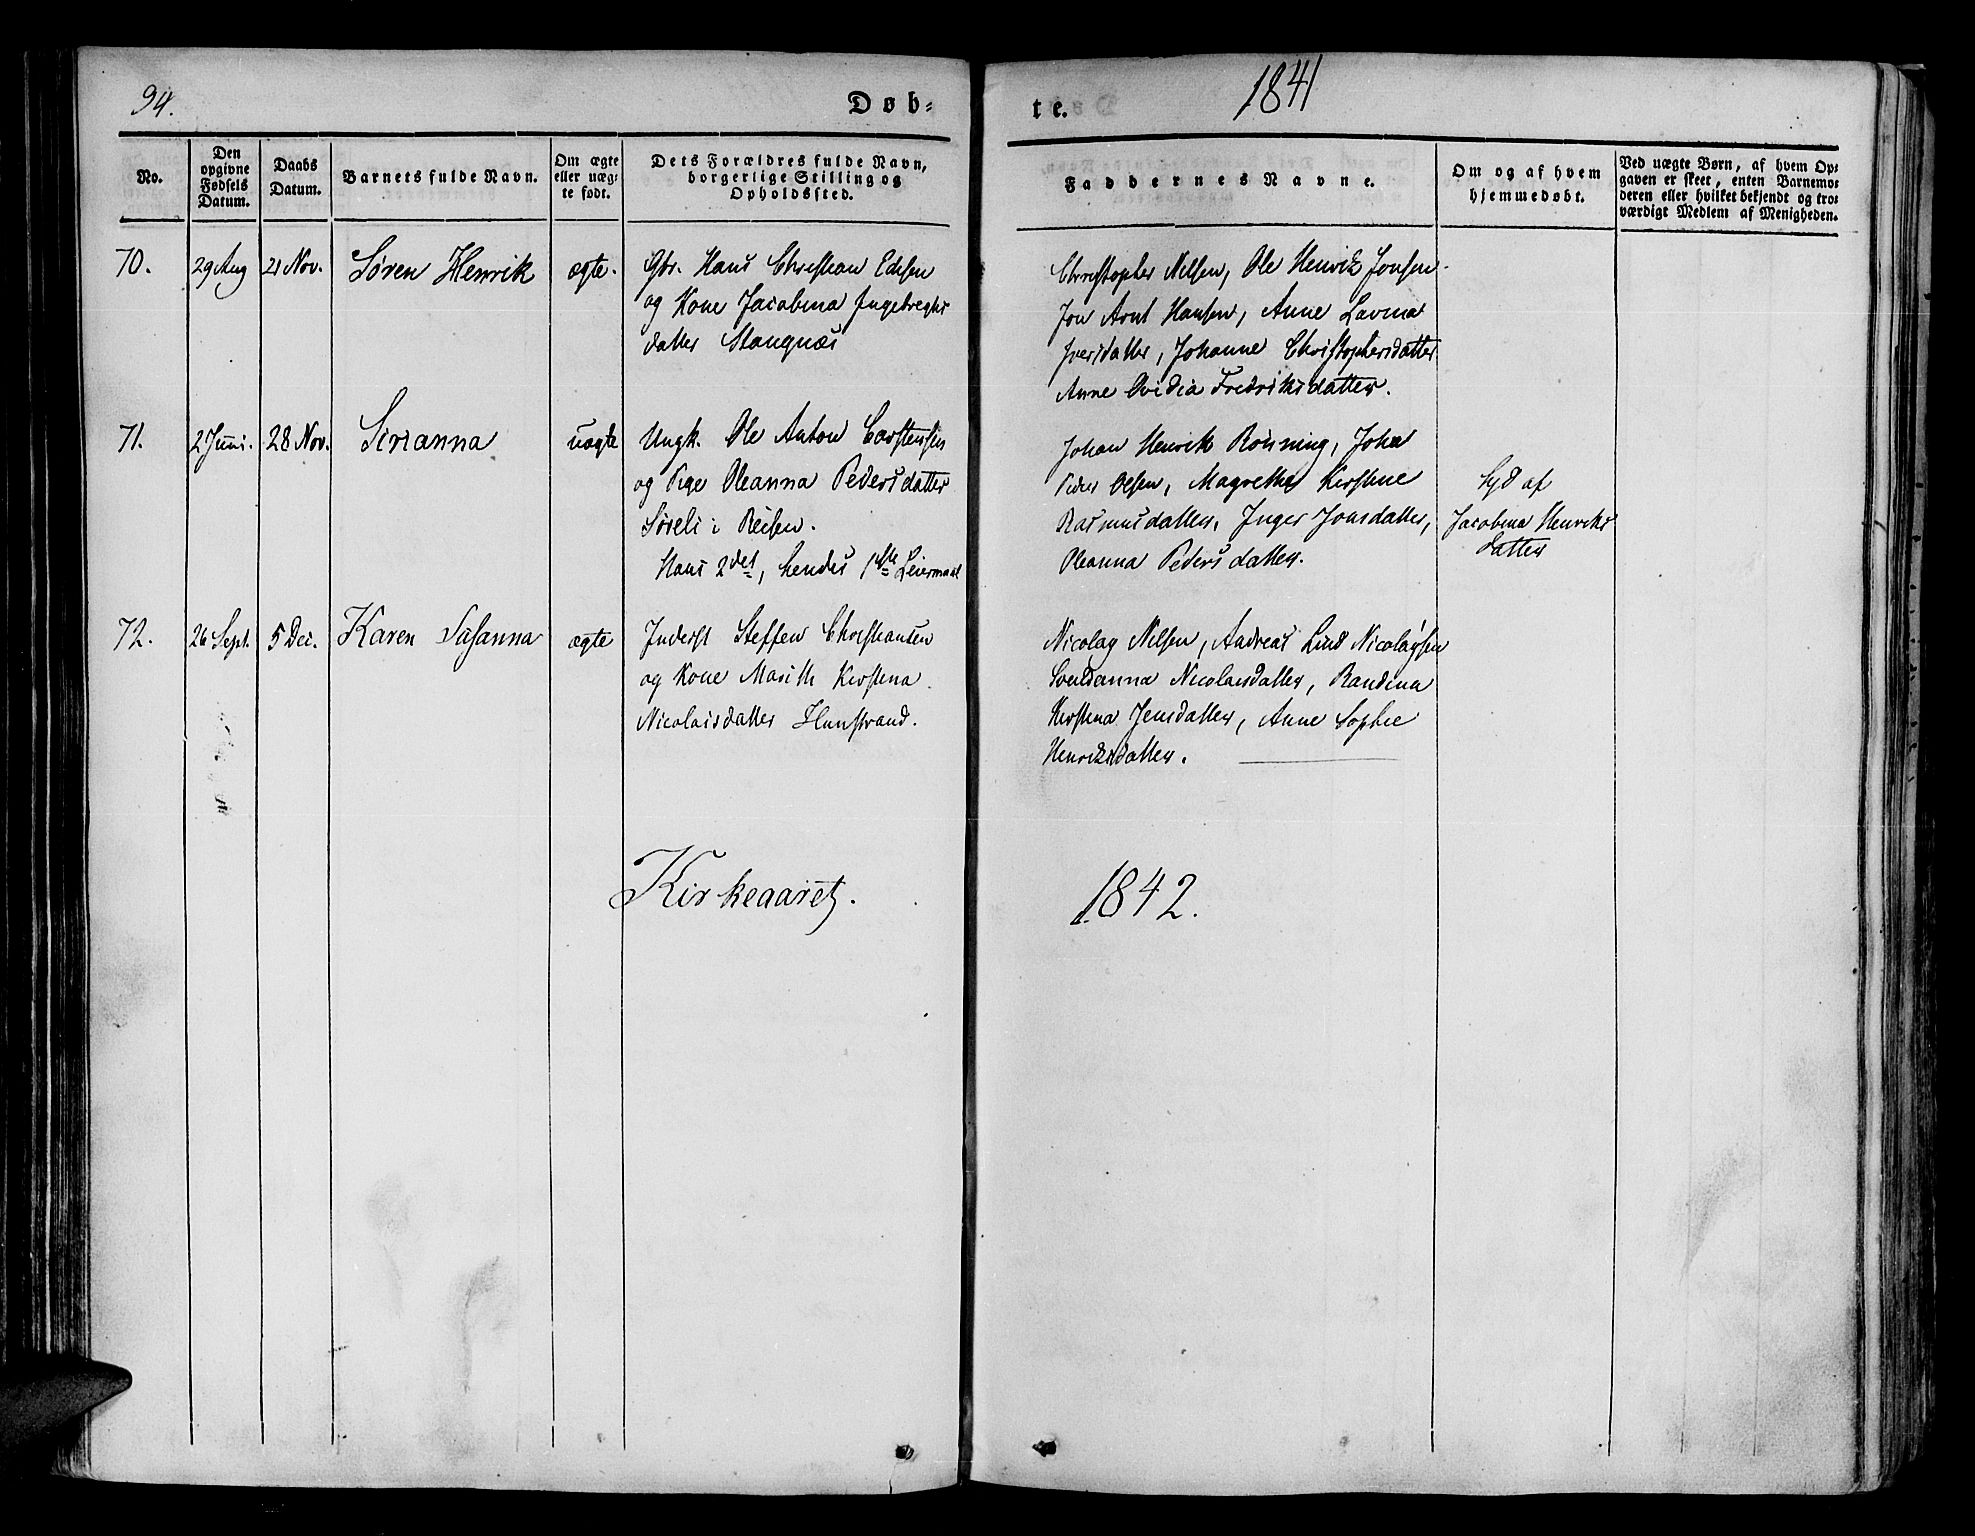 94.
Døb-
te.
1841
No.
Den opgivne Fødsels Datum.
Daabs Datum.
Barnets fulde Navn.
Om ægte eller uægte født.
Dets Forældres fulde Navn, borgerlige Stilling og Opholdssted.
Faddernes Navne.
Om og af hvem hjemmedøbt.
Ved uægte Børn, af hvem Op-
gaven er skeet, enten Barnemo-
deren eller hvilket bekjendt og tro-
værdigt Medlem af Menigheden.
70.
29 Aug
21 Nov.
Søren Henrik
ægte.
Gbr. Hans Christian Edisen
og Kone Jacobina Ingebregts
datter Stangnæs
Christopher Nilsen, Ole Henrik Jonsen
Jon Arnt Hansen, Anne Lavina
Iversdatter, Johanne Christophersdatter
Anne Ovidia Fredriksdatter.
71.
2 Juni.
28 Nov.
Sirianna
uægte
Ungk. Ole Anton Carstensen
og Pige Oleanna Pedersdatter
Søreli i Reisen.
Hans 2det, hendes 1ste Leiermaal
Johan Henrik Rønning, Johan
Peder Olsen, Magrethe Kirstine
Rasmusdatter, Inger Jonsdatter,
Oleanna Pedersdatter.
Syd af
Jacobina Henriks
datter
72.
26 Sept.
5 Dec.
Karen Susanna
ægte
Inderst Steffen Christiansen
og Kone Marith Kirstina
Nicolaisdatter Hunstrand.
Nicolay Nilsen, Andreas Lind Nicolaysen
Nicolaisdatter, Randina
Kirstina Jensdatter, Anne Sophie
Henriksdatter.
Kirkeaaret.
1842.